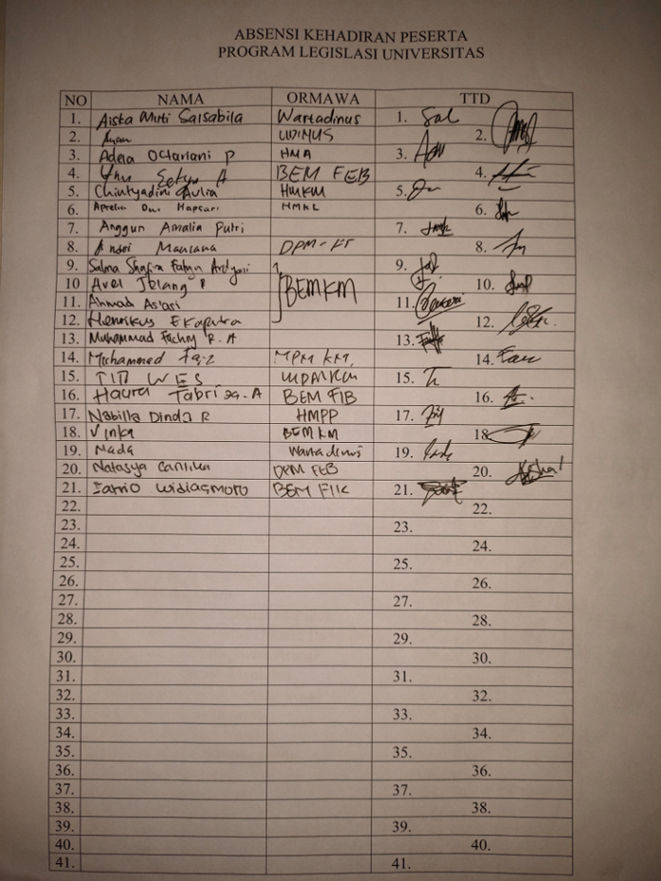 ABSENSI KEHADIRAN PESERTA
PROGRAM LEGISLASI UNIVERSITAS
NO NAMA ORMAWA TTD
1. Aiska Muti Salsabila Wartadinus 1. Sal
2. UDINUS 2.
3. Adela Octariani P HMA 3.
4. Setyo A BEM FEB 4.
5. Chintyadini Aulia HMKM 5.
6. Aprelia Dwi Hapsari HMKL 6.
7. Anggun Amalia Putri 7.
8. Andri Maulana DPM-FT 8.
9. Salma Shafira Fatyn Ardyani 9.
10 Avel Jelang P BEMKM 10.
11. Ahmad As'ari 11.
12. Henrikus Ekaputra 12.
13. Muhammad Fachry R. A 13.
14. Mochammad Faiz MPM KM 14.
15. TITI WES MPMKM 15.
16. Haura Tabriza. A BEM FIB 16.
17. Nabilla Dinda R HMPP 17.
18. Vinka BEM KM 18
19. Mada Wartadinus 19.
20. Natasya Cantika DPM FEB 20.
21. Satrio Widiasmoro BEM FIK 21.
22. 22.
23. 23.
24. 24.
25. 25.
26. 26.
27. 27.
28. 28.
29. 29.
30. 30.
31. 31.
32. 32.
33. 33.
34. 34.
35. 35.
36. 36.
37. 37.
38. 38.
39. 39.
40. 40.
41. 41.